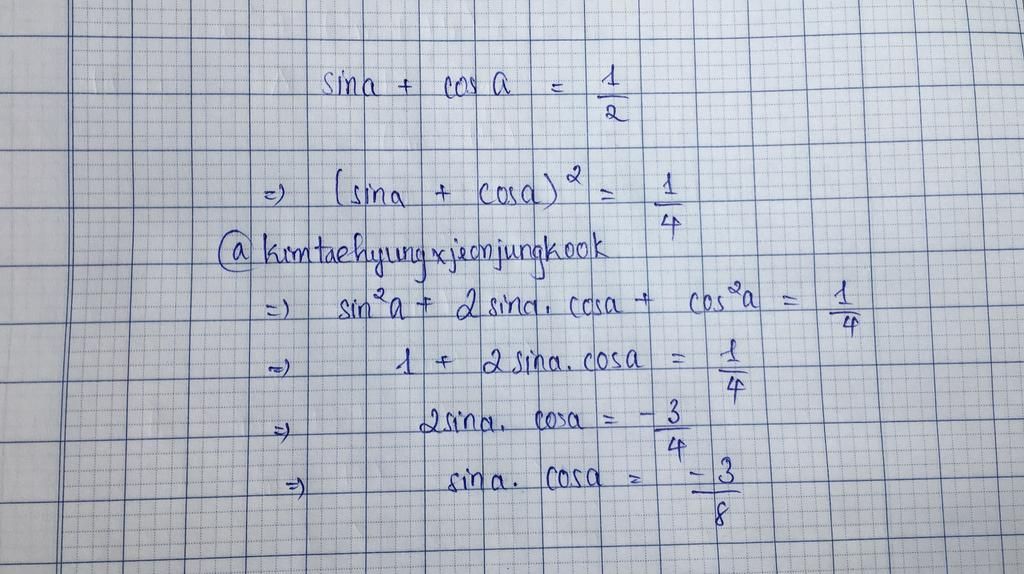 sina + cos a = 1/2
=) (sina + cosa)² = 1/4
@kimtaehyungxjeonjungkook
=) sin²a + 2 sina. cosa + cos²a = 1/4
=) 1 + 2 sina. cosa = 1/4
=) 2sina. cosa = -3/4
=) sina. cosa = -3/8